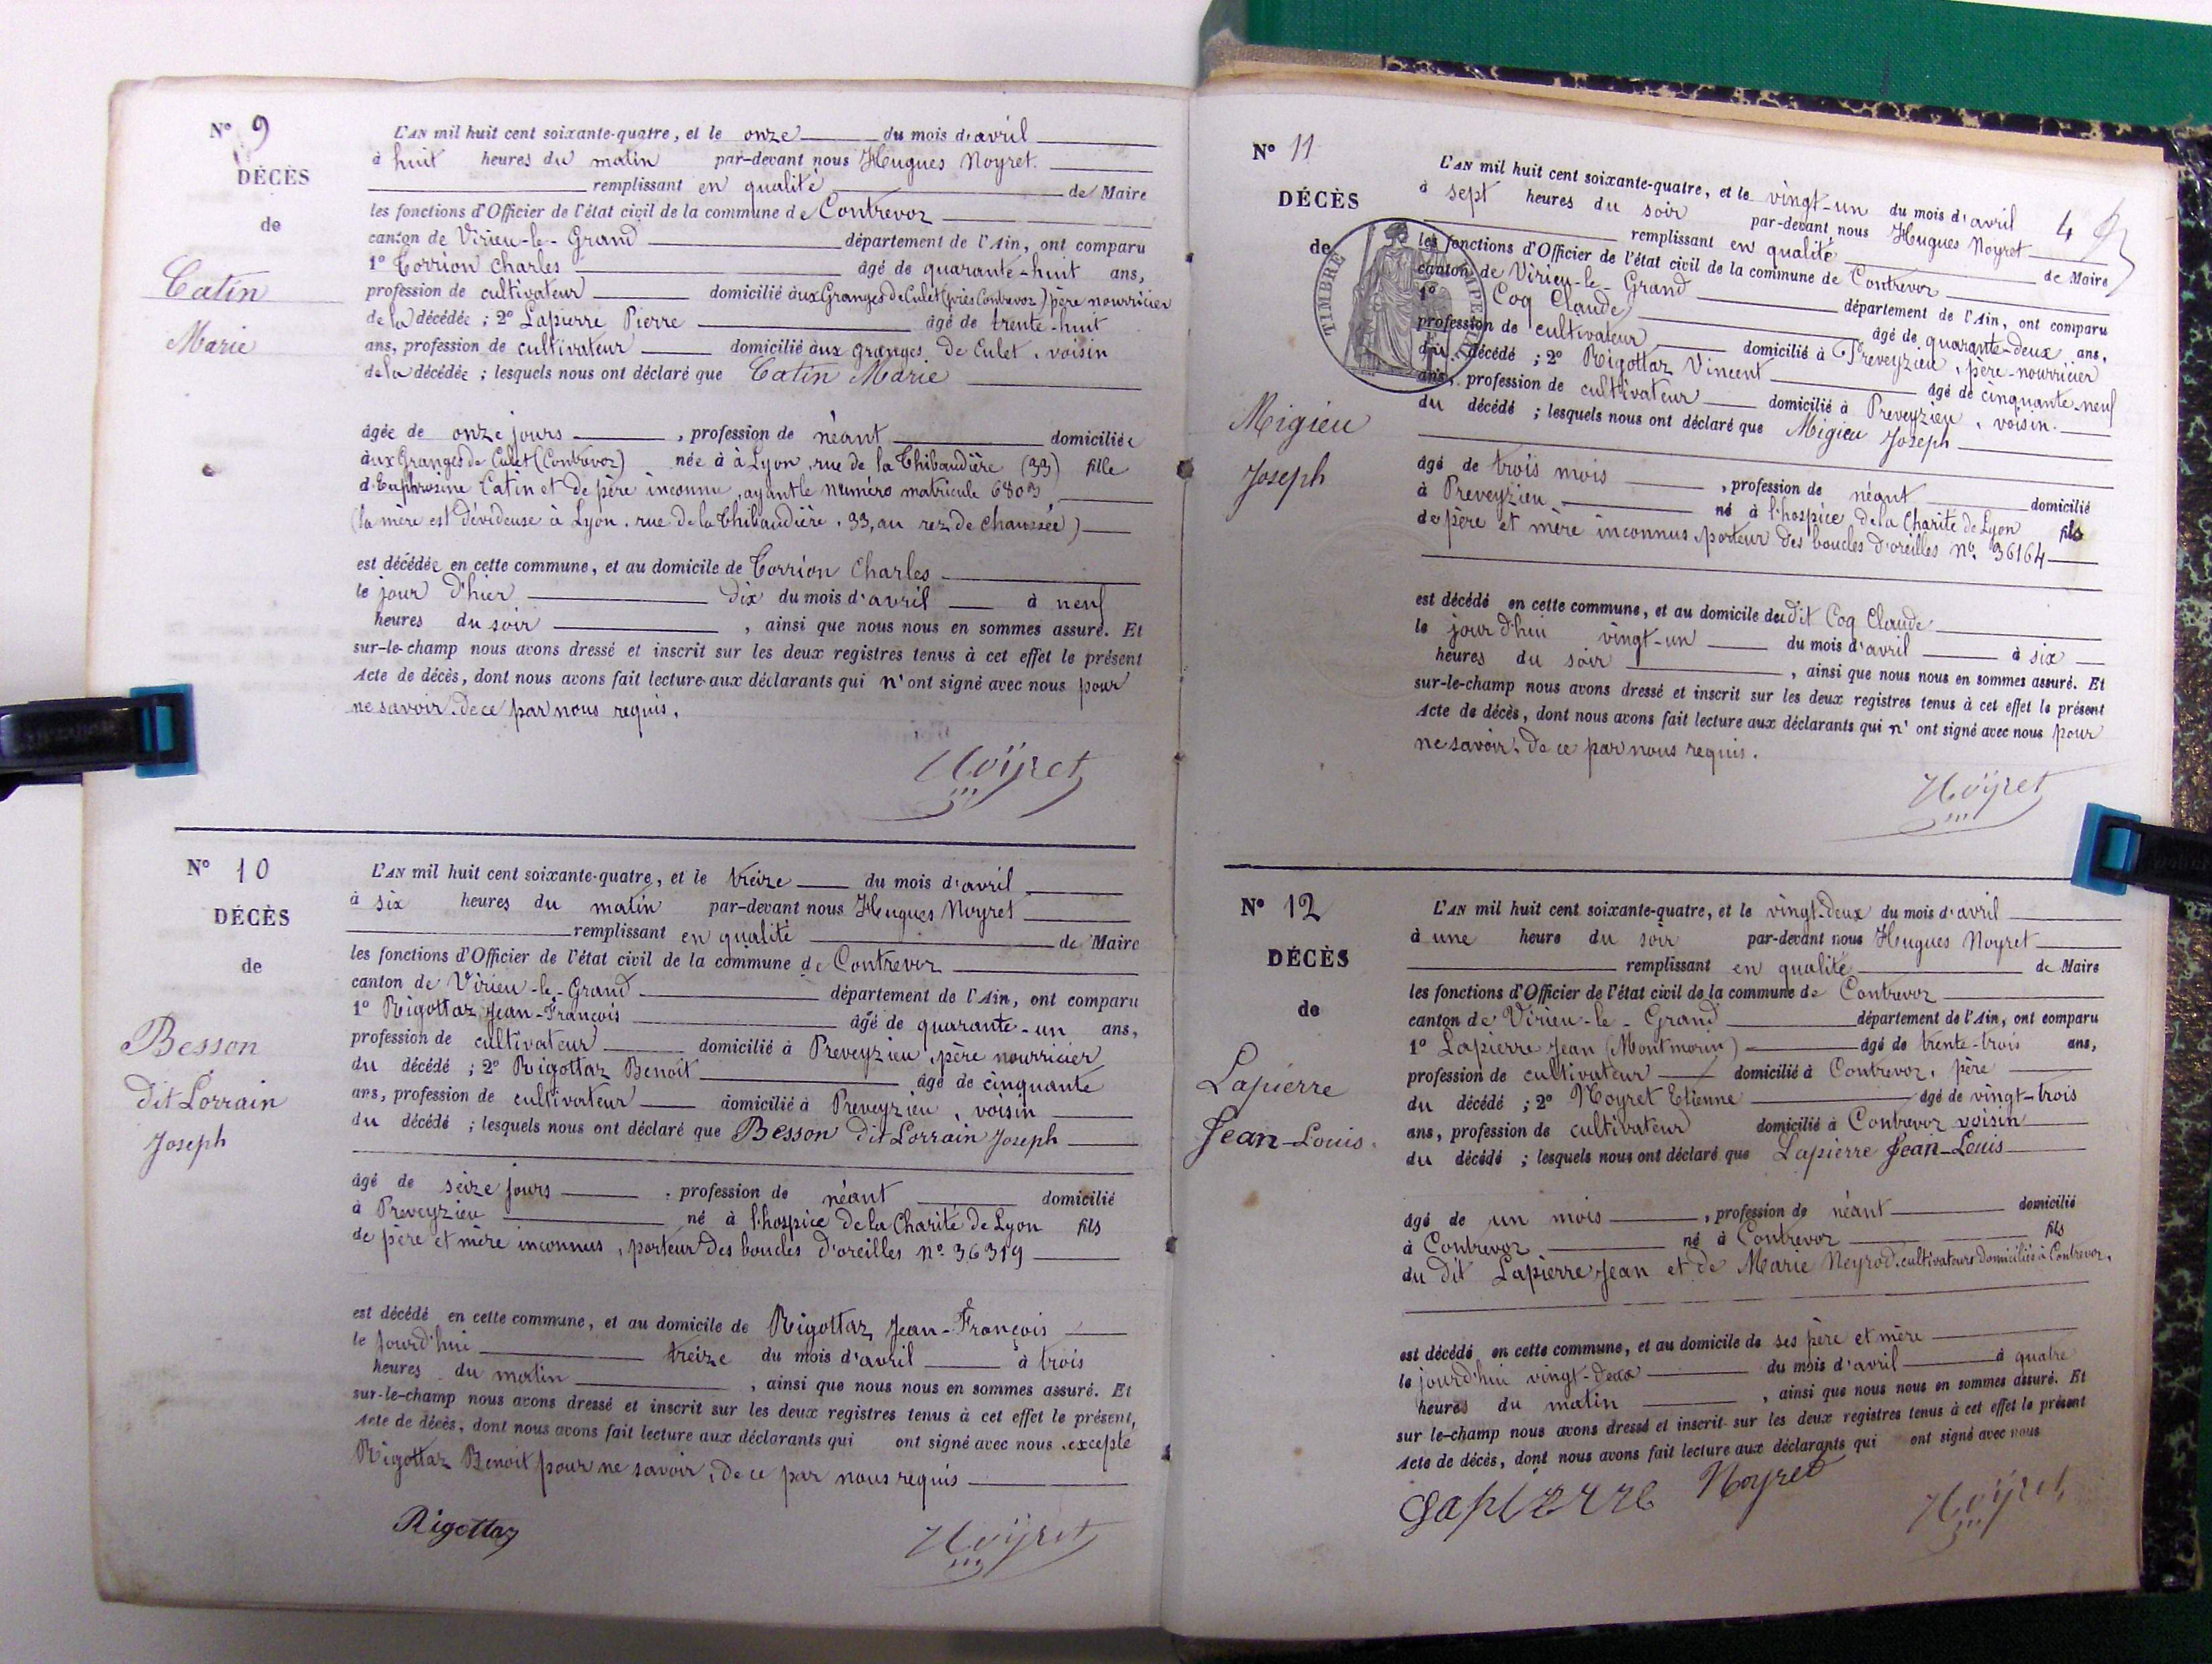 N° 9
DÉCÈS
de
Catin
Marie
L'AN mil huit cent soixante-quatre, et le onze du mois d'avril
à huit heures du matin par-devant nous Hugues Noyret.
remplissant en qualité de Maire
les fonctions d'Officier de l'état civil de la commune de Contrevoz
canton de Virieu-le-Grand département de l'Ain, ont comparu
1° Torrion Charles âgé de quarante-huit ans,
profession de cultivateur domicilié aux Granges de Culet (près Contrevoz) père nourricier
de la décédée ; 2° Lapierre Pierre âgé de trente-huit
ans, profession de cultivateur domicilié aux granges de Culet, voisin
de la décédée ; lesquels nous ont déclaré que Catin Marie
âgée de onze jours , profession de néant domiciliée
aux Granges de Culet (Contrevoz) née à à Lyon, rue de la Thibaudière (33) fille
d'Euphrosine Catin et de père inconnu, ayant le numéro matricule 6803,
(la mère est dévideuse à Lyon, rue de la Thibaudière, 33, au rez de chaussée)
est décédée en cette commune, et au domicile de Torrion Charles
le jour d'hier dix du mois d'avril à neuf
heures du soir , ainsi que nous nous en sommes assuré. Et
sur-le-champ nous avons dressé et inscrit sur les deux registres tenus à cet effet le présent
Acte de décès, dont nous avons fait lecture aux déclarants qui n'ont signé avec nous pour
ne savoir. de ce par nous requis.
Noÿret
N° 10
DÉCÈS
de
Besson
dit Lorrain
Joseph
L'AN mil huit cent soixante-quatre, et le treize du mois d'avril
à six heures du matin par-devant nous Hugues Noyret
remplissant en qualité de Maire
les fonctions d'Officier de l'état civil de la commune de Contrevoz
canton de Virieu-le-Grand département de l'Ain, ont comparu
1° Rigottaz Jean-François âgé de quarante-un ans,
profession de cultivateur domicilié à Preveyzieu, père nourricier
du décédé ; 2° Rigottaz Benoit âgé de cinquante
ans, profession de cultivateur domicilié à Preveyzieu, voisin
du décédé ; lesquels nous ont déclaré que Besson dit Lorrain Joseph
âgé de seize jours , profession de néant domicilié
à Preveyzieu né à l'hospice de la Charité de Lyon fils
de père et mère inconnus, porteur des boucles d'oreilles n° 36319
est décédé en cette commune, et au domicile de Rigottaz Jean-François
le jourd'hui treize du mois d'avril à trois
heures du matin , ainsi que nous nous en sommes assuré. Et
sur-le-champ nous avons dressé et inscrit sur les deux registres tenus à cet effet le présent,
Acte de décès, dont nous avons fait lecture aux déclarants qui ont signé avec nous, excepté
Rigottaz Benoit pour ne savoir, de ce par nous requis
Rigottaz
Noÿret
N° 11
DÉCÈS
de
TIMBRE IMPERIAL
Migieu
Joseph
4
L'AN mil huit cent soixante-quatre, et le vingt-un du mois d'avril
à sept heures du soir par-devant nous Hugues Noyret
remplissant en qualité de Maire
les fonctions d'Officier de l'état civil de la commune de Contrevoz
canton de Virieu-le-Grand département de l'Ain, ont comparu
1° Coq Claude âgé de quarante-deux ans,
profession de cultivateur domicilié à Preveyzieu, père-nourricier
du décédé ; 2° Rigottaz Vincent âgé de cinquante-neuf
ans, profession de cultivateur domicilié à Preveyzieu, voisin.
du décédé ; lesquels nous ont déclaré que Migieu Joseph
âgé de trois mois , profession de néant domicilié
à Preveyzieu né à l'hospice de la Charité de Lyon fils
de père et mère inconnus, porteur des boucles d'oreilles n°. 36164
est décédé en cette commune, et au domicile du dit Coq Claude
le jour d'hui vingt-un du mois d'avril à six
heures du soir , ainsi que nous nous en sommes assuré. Et
sur-le-champ nous avons dressé et inscrit sur les deux registres tenus à cet effet le présent
Acte de décès, dont nous avons fait lecture aux déclarants qui n'ont signé avec nous pour
ne savoir, de ce par nous requis.
Noÿret
N° 12
DÉCÈS
de
Lapierre
Jean-Louis.
L'AN mil huit cent soixante-quatre, et le vingt-deux du mois d'avril
à une heure du soir par-devant nous Hugues Noyret
remplissant en qualité de Maire
les fonctions d'Officier de l'état civil de la commune de Contrevoz
canton de Virieu-le-Grand département de l'Ain, ont comparu
1° Lapierre Jean (Montmorin) âgé de trente-trois ans,
profession de cultivateur domicilié à Contrevoz, père
du décédé ; 2° Noyret Etienne âgé de vingt-trois
ans, profession de cultivateur domicilié à Contrevoz voisin
du décédé ; lesquels nous ont déclaré que Lapierre Jean-Louis
âgé de un mois , profession de néant domicilié
à Contrevoz né à Contrevoz fils
du dit Lapierre Jean et de Marie Neyrod, cultivateurs domiciliés à Contrevoz.
est décédé en cette commune, et au domicile de ses père et mère
le jourd'hui vingt-deux du mois d'avril à quatre
heures du matin , ainsi que nous nous en sommes assuré. Et
sur le-champ nous avons dressé et inscrit sur les deux registres tenus à cet effet le présent
Acte de décès, dont nous avons fait lecture aux déclarants qui ont signé avec nous
Lapierre Noyret Noÿret